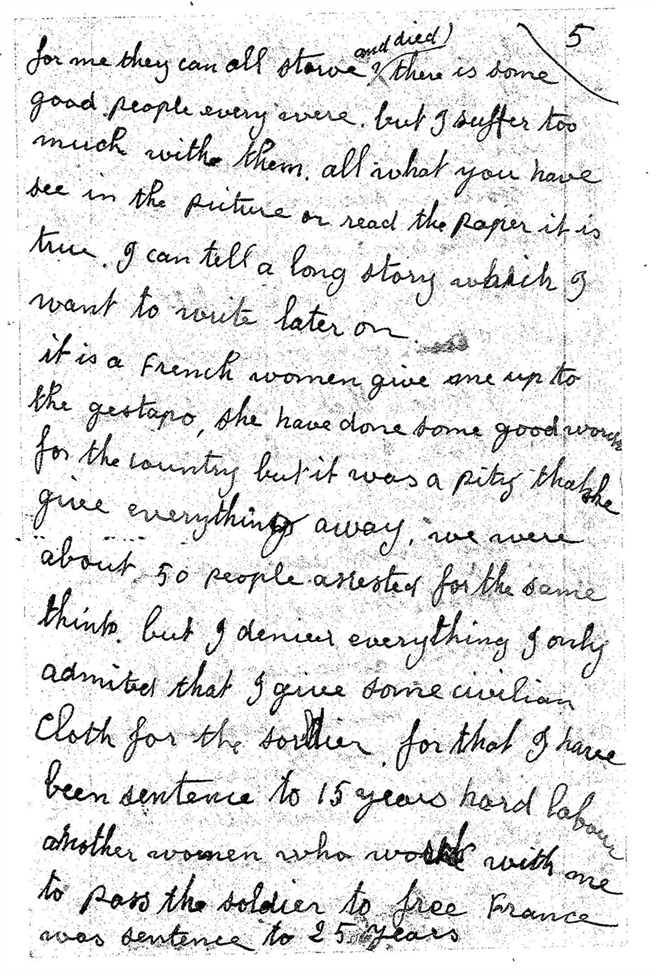 5
for me they can all starve and died) there is some
good people every were. but I suffer too
much with them. all what you have
see in the picture or read the paper it is
true. I can tell a long story which I
want to write later on.
it is a French women give me up to
the gestapo, she have done some good work
for the country but it was a pity that she
give everything away, we were
about 50 people arrested for the same
think. but I denier everything I only
admited that I give some civilian
cloth for the soldier. for that I have
been sentence to 15 years hard labour
another women who work with me
to pass the soldier to free France
was sentence to 25 years